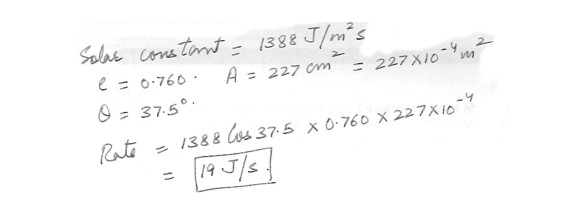 Solar constant = 1388 J/m²s
e = 0.760 . A = 227 cm² = 227 X10⁻⁴ m²
θ = 37.5°.
Rate = 1388 Cos 37.5 X 0.760 X 227X10⁻⁴
= 19 J/s.